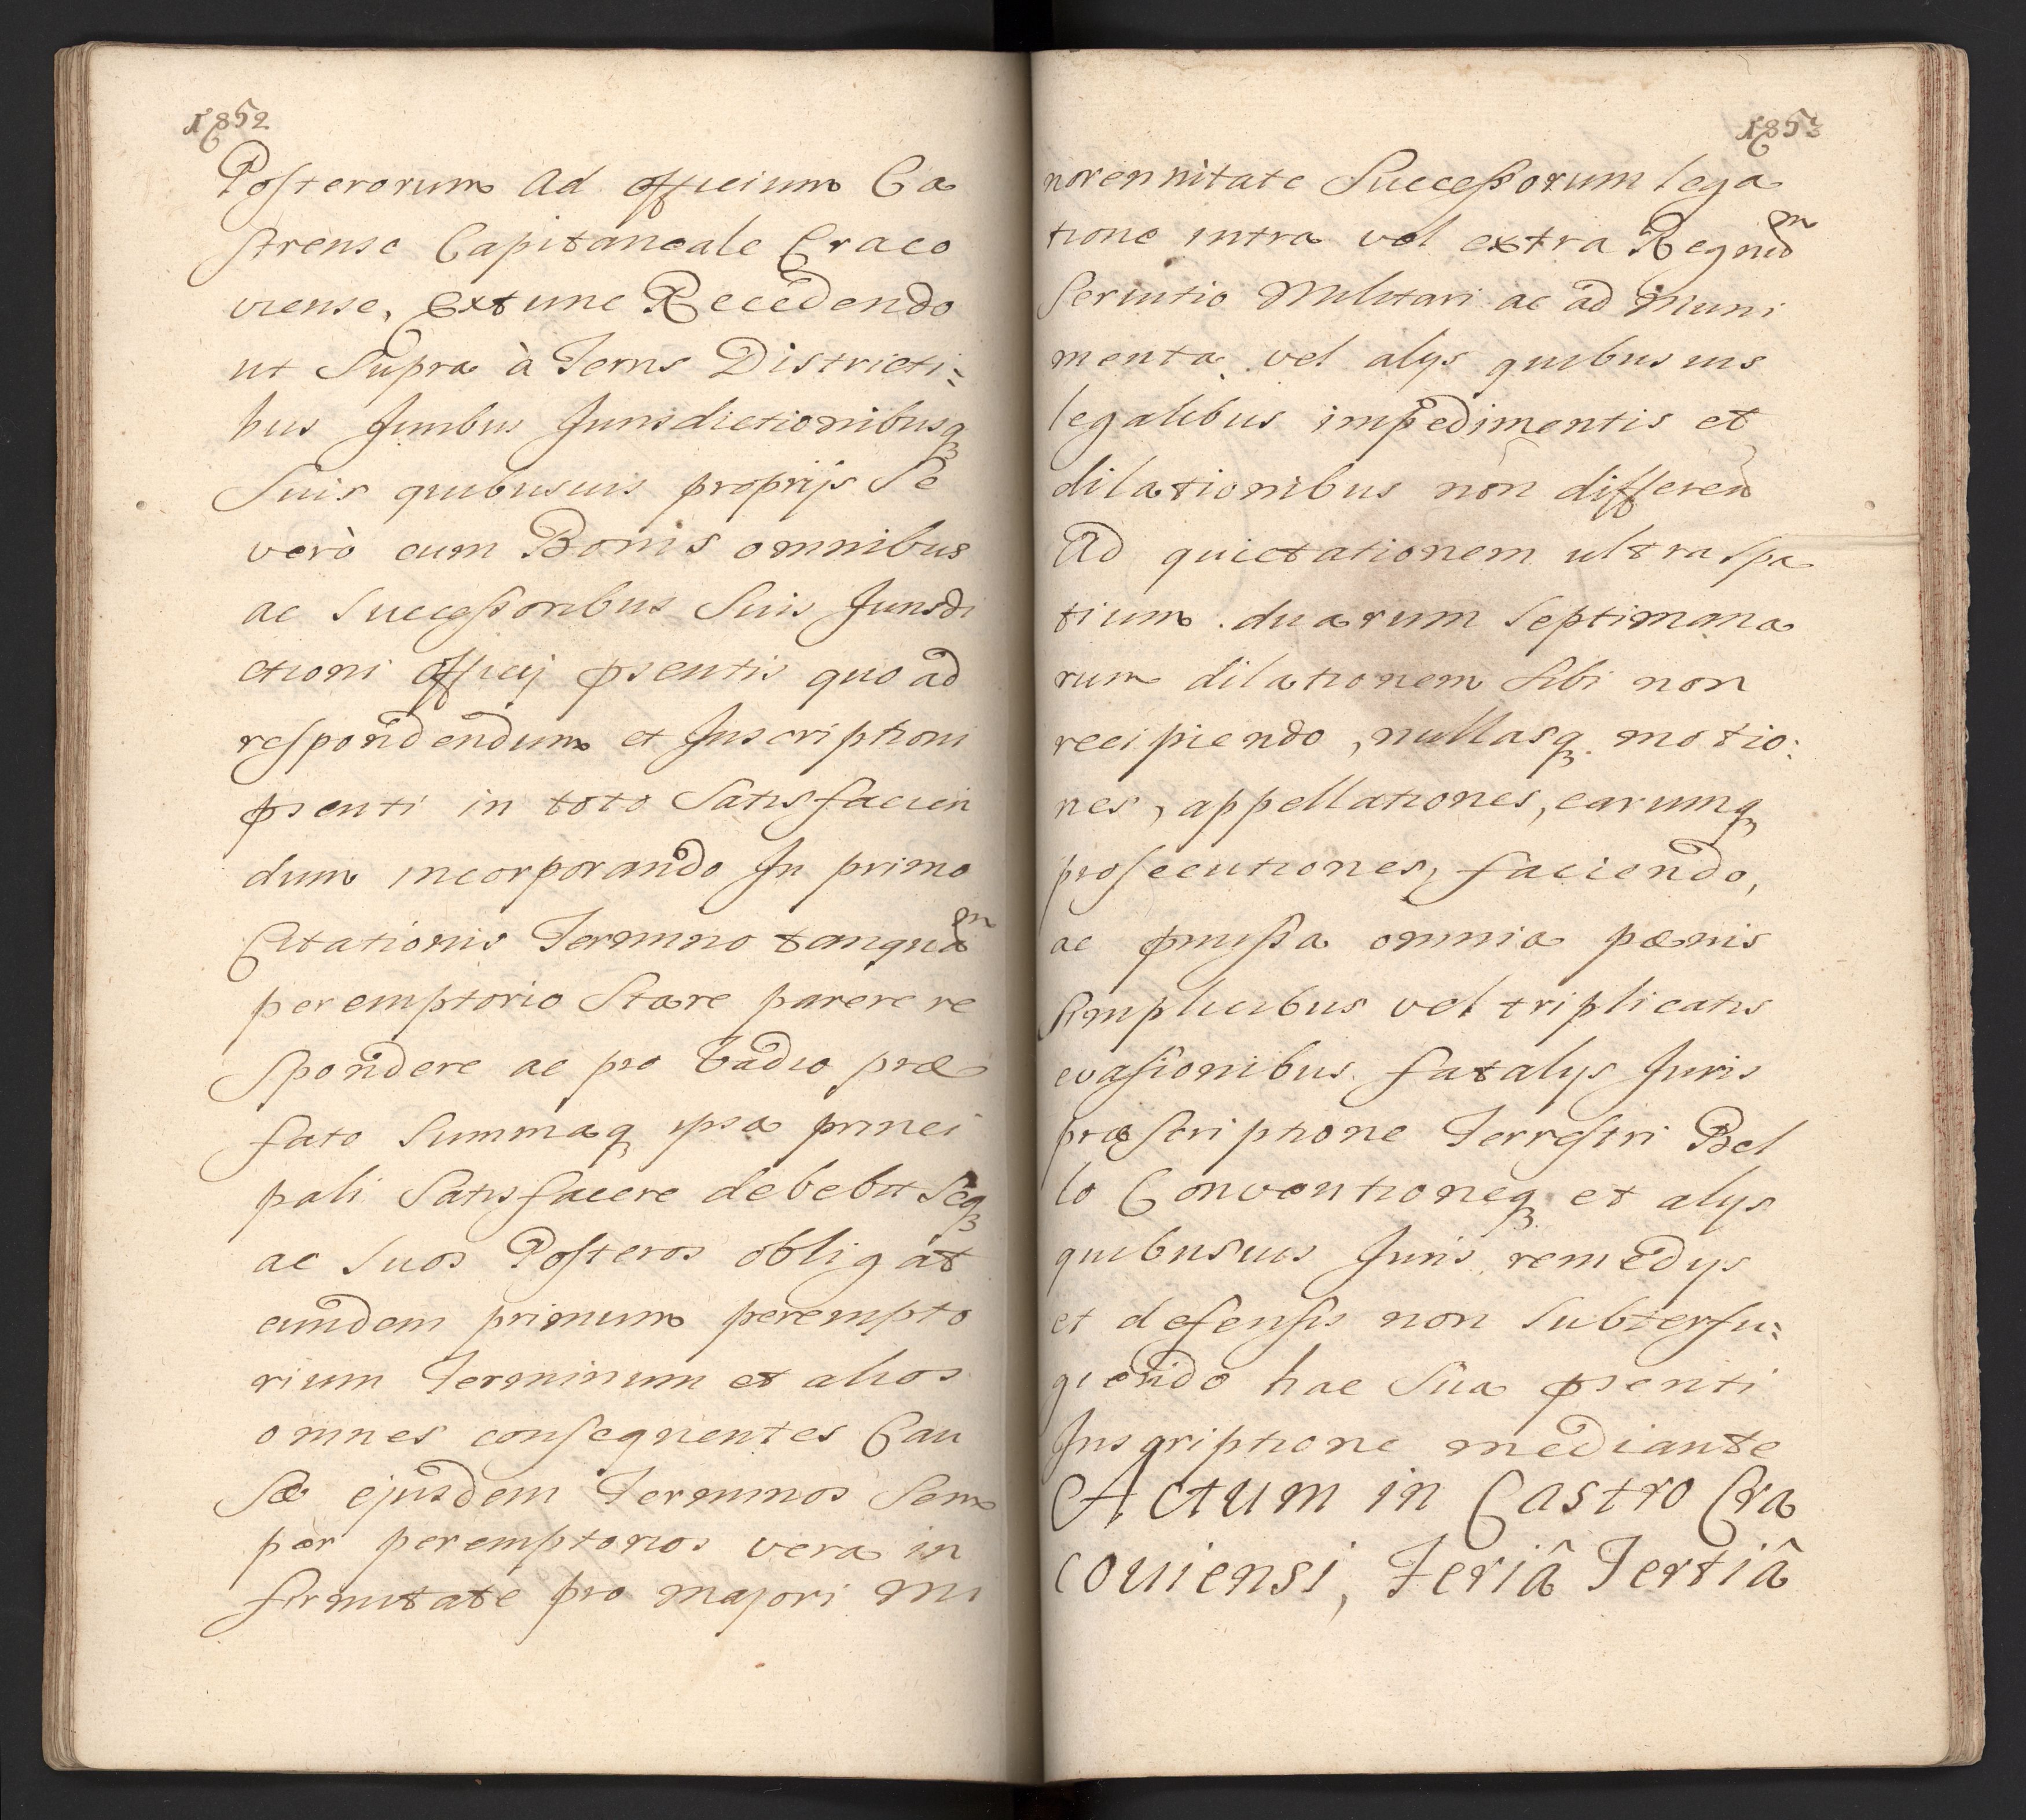 1852
Posterorum ad officium Ca
strense Capitaneale Craco
viense, Ex tunc Recedendo
ut Supra à Terris Districti=
bus Juribus Jurisdictionibusq
Suis quibusuis proprijs Se
verò cum Bonis omnibus
ac Successoribus Suis Jurisdi
ctioni officij pśentis quo ad
respondendum et Inscriptioni
pśenti in toto Satisfacien
dum incorporando In primo
Citationis Termino tanquam
peremptorio Stare parere re
Spondere ac pro Vadio præ
fato Summaq ipsa princi
pali Satisfacere debebit Seq
ac Suos Posteros obligat
eundem primum perempto
rium Terminum et alios
omnes consequentes Cau
sæ ejusdem Terminos Sem
per peremptorios vera in
firmitate pro majori Mi
1853
norennitate Successorum lega
tione intra vel extra Regnum
Seruitio Militari ac ad Muni
menta vel alys quibusuis
legalibus impedimentis et
dilationibus non differen
Ad quietationem ultra spa
tium duarum Septimana
rum dilationem Sibi non
recipiendo, nullasq motio:
nes, appellationes, earumq
prosecutiones, faciendo,
ac pmissa omnia pænis
Simplicibus vel triplicatis
evasionibus fatalys Juris
præscriptione Terrestri Bel
lo Conventioneq et alys
quibusuis Juris remedys
et defensis non Subterfu:
giendo hac Sua pśenti
Inscriptione mediante
Actum in Castro Cra
couiensi, Feriâ Tertiâ